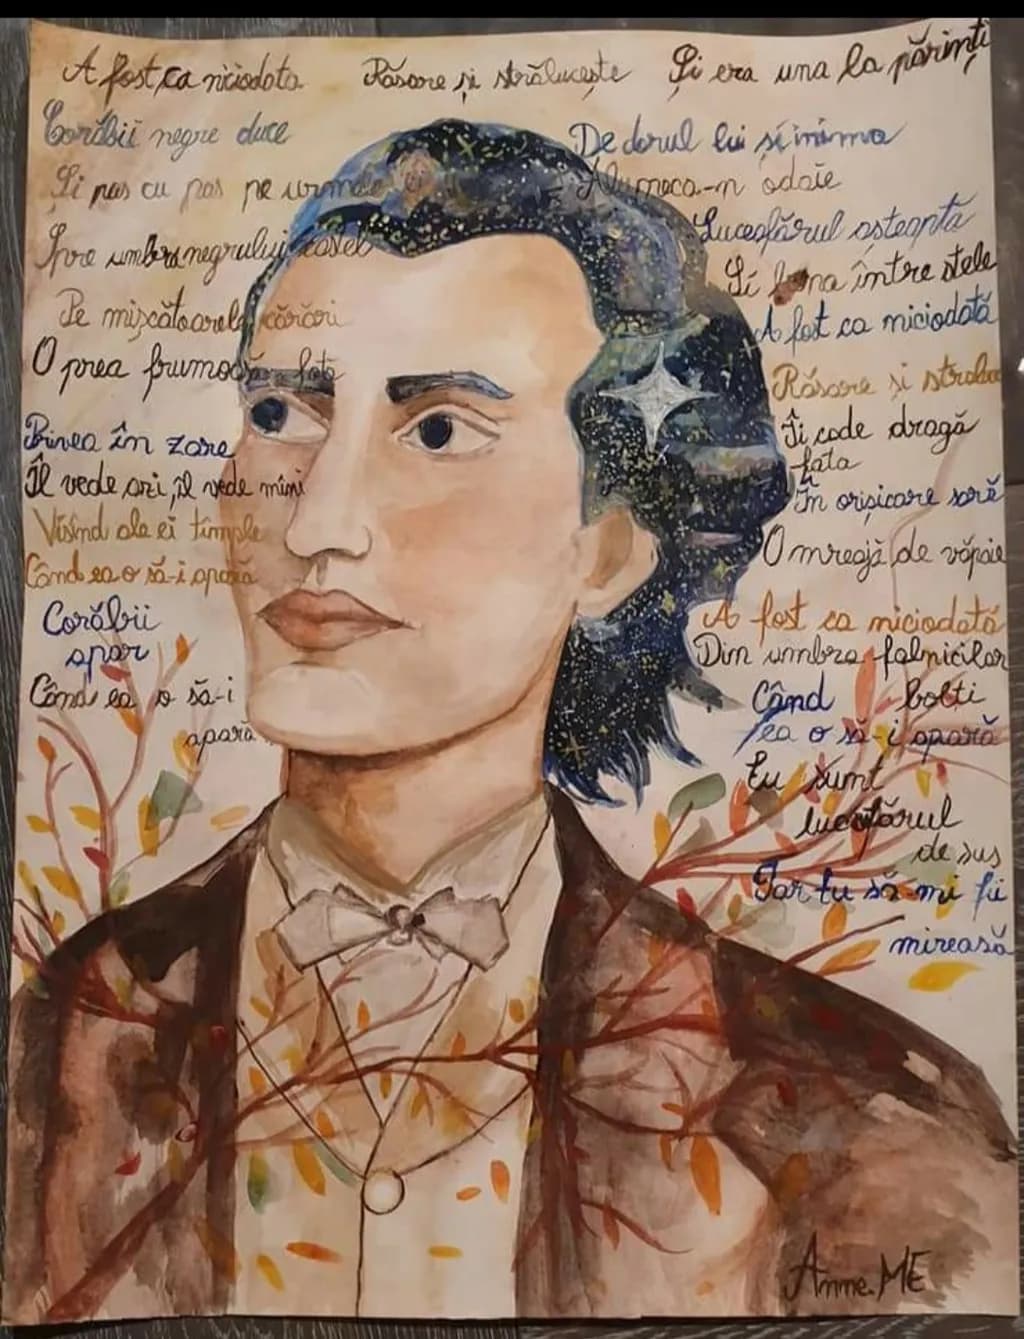 A fost ca niciodata
Răsare și strălucește
Și era una la părinți
Corăbii negre duce
De dorul lui și inima
Și pas cu pas pe urmele
odaie
Spre umbra negrului castel
Luceafărul așteaptă
Și luna între stele
Pe mișcătoarele cărări
A fost ca niciodată
O prea frumoasă fată
Răsare și străluc
Privea în zare
Îi cade dragă
fata
Îl vede azi, îl vede mîni
În orișicare sară
Visînd ale ei tîmple
O mreajă de văpaie
Când ea o să-i apară
Corăbii
apar
A fost ca niciodată
Din umbra falnicilor
Când ea o să-i
apară
Când bolti
ea o să-i apară
Eu sunt
luceafărul
de sus
Iar tu să-mi fii
mireasă
Anne.ME